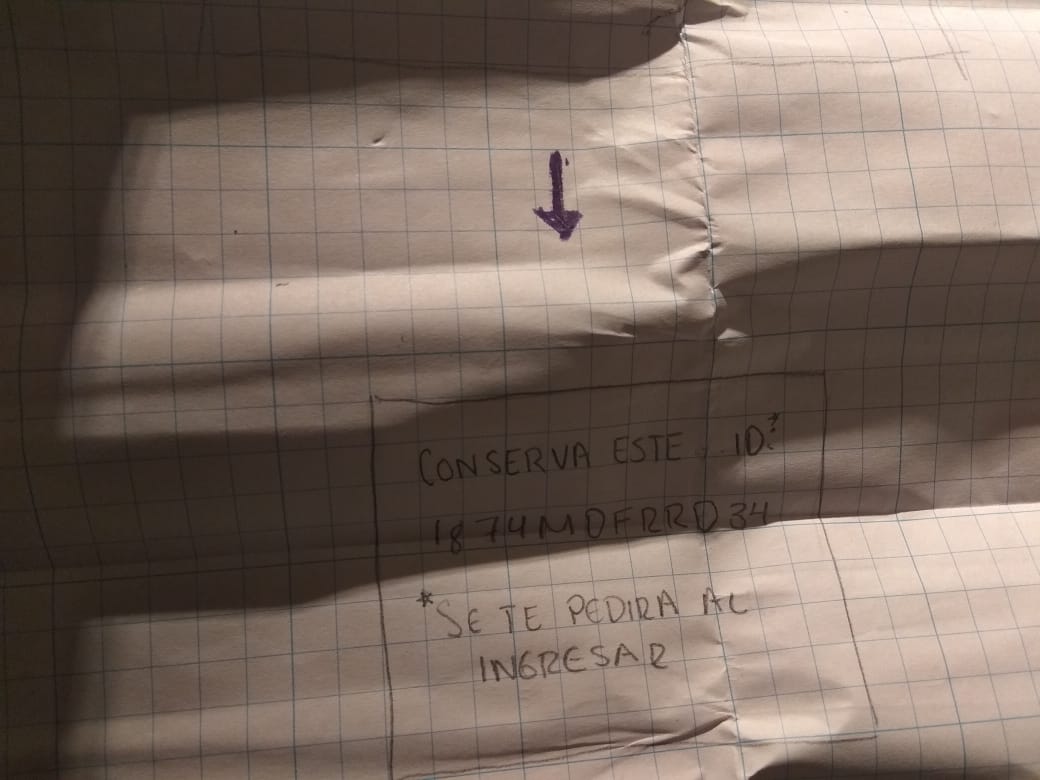 CONSERVA ESTE ID:*
1874MDFRRD34
*SE TE PEDIRA AL
INGRESAR